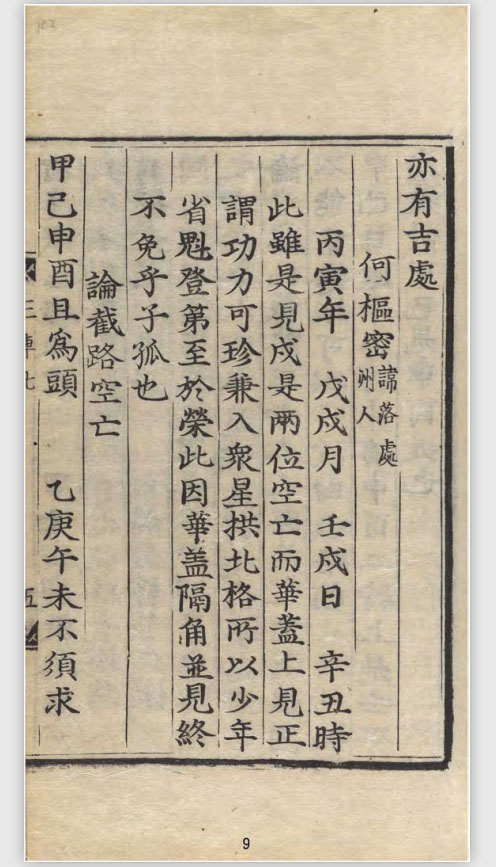 亦有吉處
何樞密諱落處州人
丙寅年 戊戌月 壬戌日 辛丑時
此雖是見戌是兩位空亡而華蓋上見正
謂功力可珍兼入衆星拱北格所以少年
省魁登第至於榮此因華盖隔角並見終
不免乎子孤也
論截路空亡
甲己申酉且爲頭 乙庚午未不須求
五
9